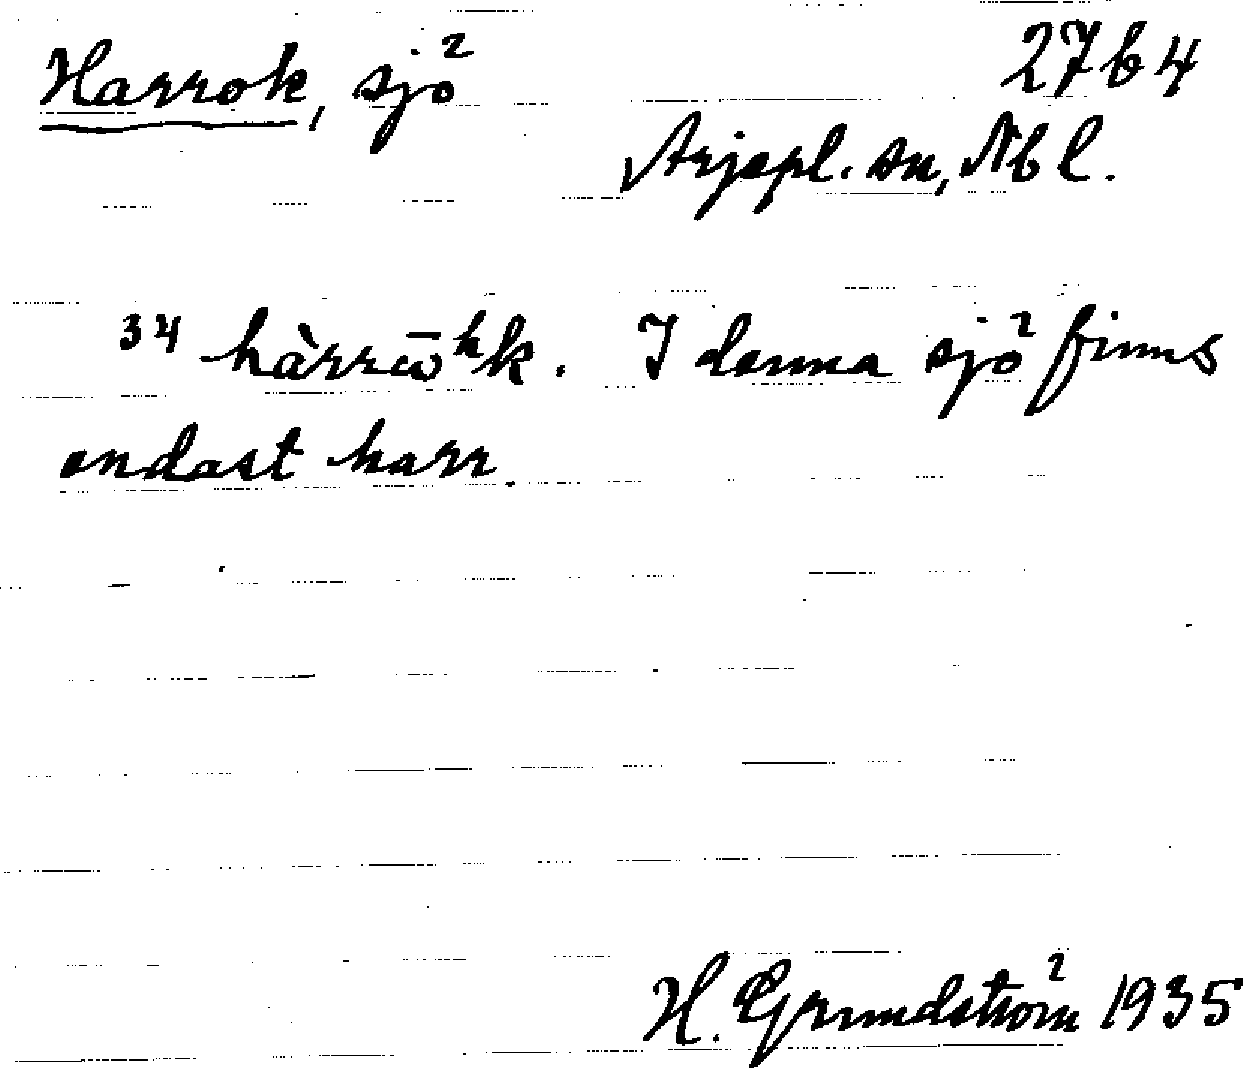 Harrok, sjö 27b4
Arjepl. sn, Nbl.
34 hàrrω̄ʰk. I denna sjö finns
endast harr.
H. Grundström 1935